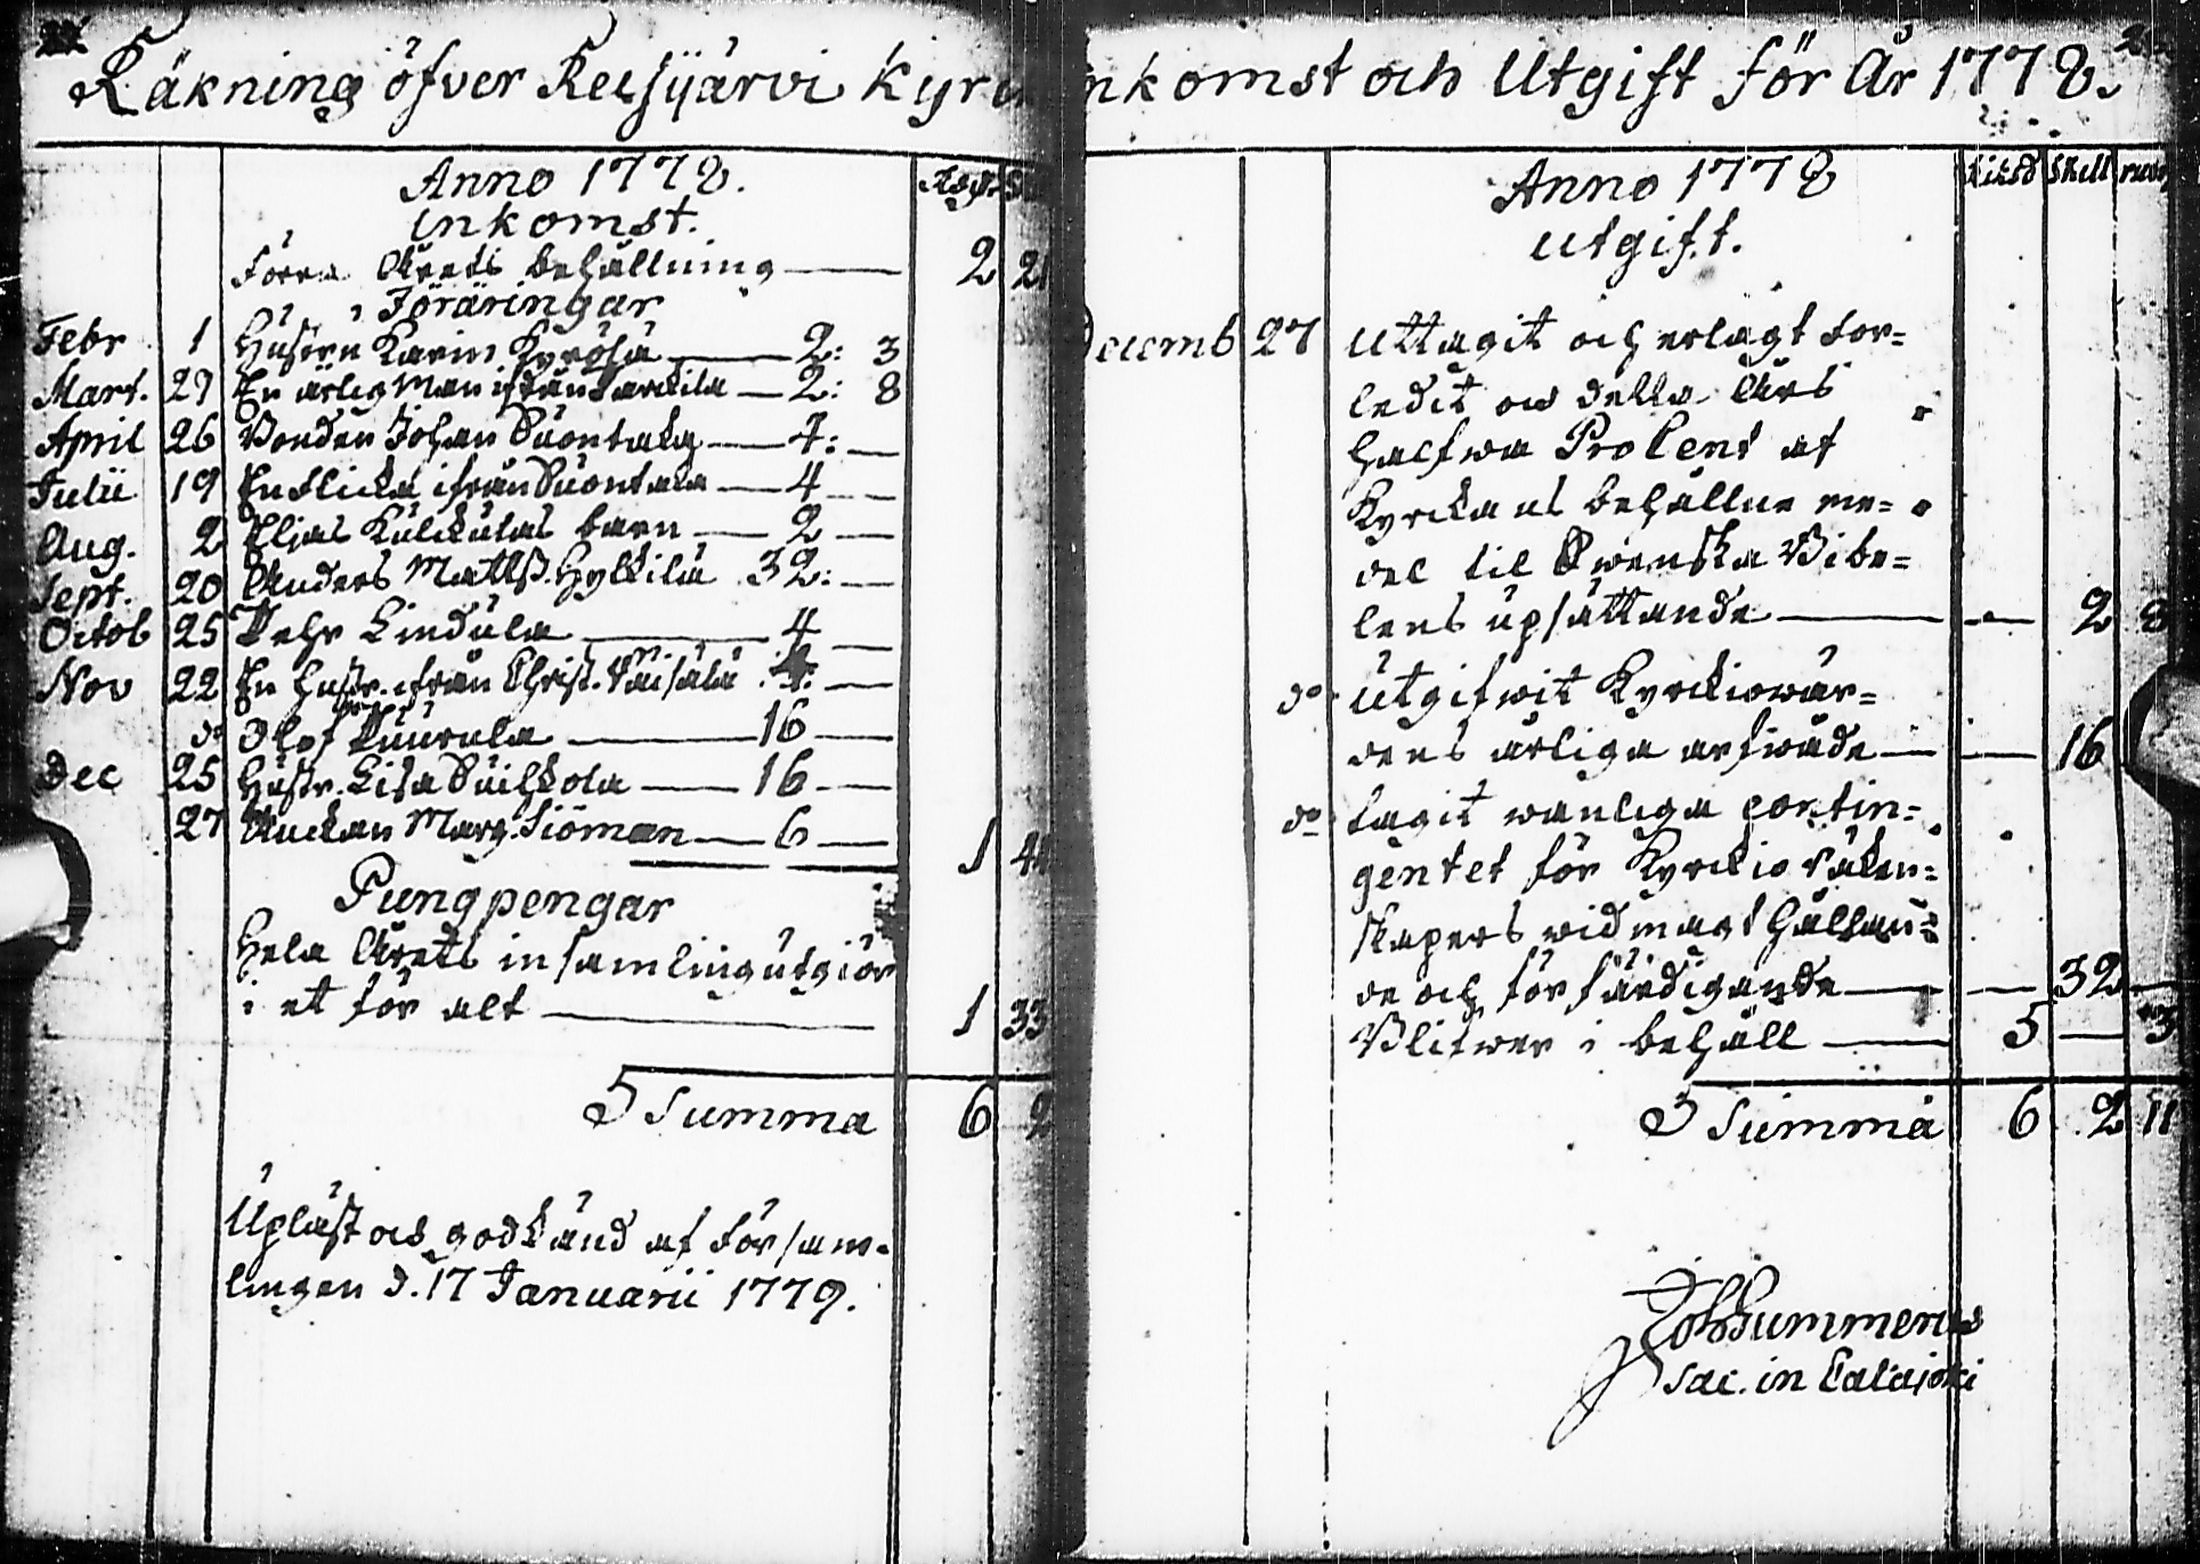 Räkning öfver Reisjärvi Kyrck inkomst och Utgift för År 1778.
Anno 1778.
inkomst.
Förra Årets behållning — 2 21
Föräringar
Febr 1 Hustru Karin Kyrölä — 2: 3
Mart. 29 En ärlig Man ifrån — 2: 8
April 26 Bonden Johan Suontaka — 4: —
Julii 19 En flicka ifrån Suontaka — 4 —
Aug. 2 Elias barn — 2 —
Sept. 20 Anders Mattss. Hylkilä 32: —
Octob 25 Pehr Lindula — 4 —
Nov 22 En hustr. ifrån Christ. 4: —
do Olof Puurula — 16 —
Dec 25 Hustr. Lisa — 16 —
27 Änckan Marg. Siöman — 6 — 1 44
Pungpengar
Hela Årets insamling utgiör
i et för alt — 1 33
Summa 6 2
Upläst och godkänd af församlingen
d. 17 Januarii 1779.
Anno 1778 Riksd Skill
Utgift.
Decemb 27 Uttagit och erlagt for=
ledit och detta Års
halfwa ProCent af
Kyrckans behållne me=
del til Swenska Bibe=
lens upsättande — — 2 8
do Utgifwit Kyrckiowär=
dens årliga arfwode — — 16
do tagit wanliga contin=
gentet för Kyrckio räken=
skapers widmagt hållan=
de och för färdigande — — 32 —
Blifwer i behåll — 5 — 3
Summa 6 2 11
Joh Gummerus
Sac. in Calajoki